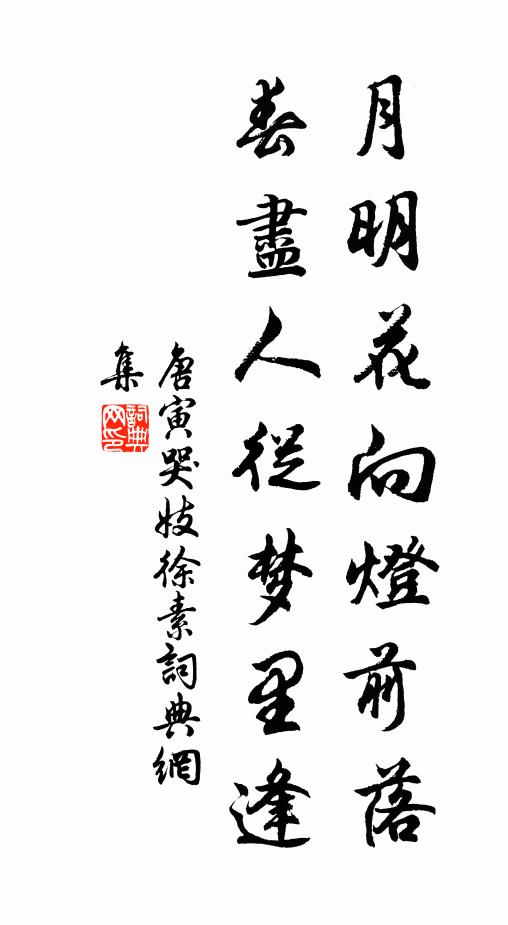 月明花向燈前落
春盡人從梦里逢
唐寅哭妓徐素詞典網
集
詞典网印